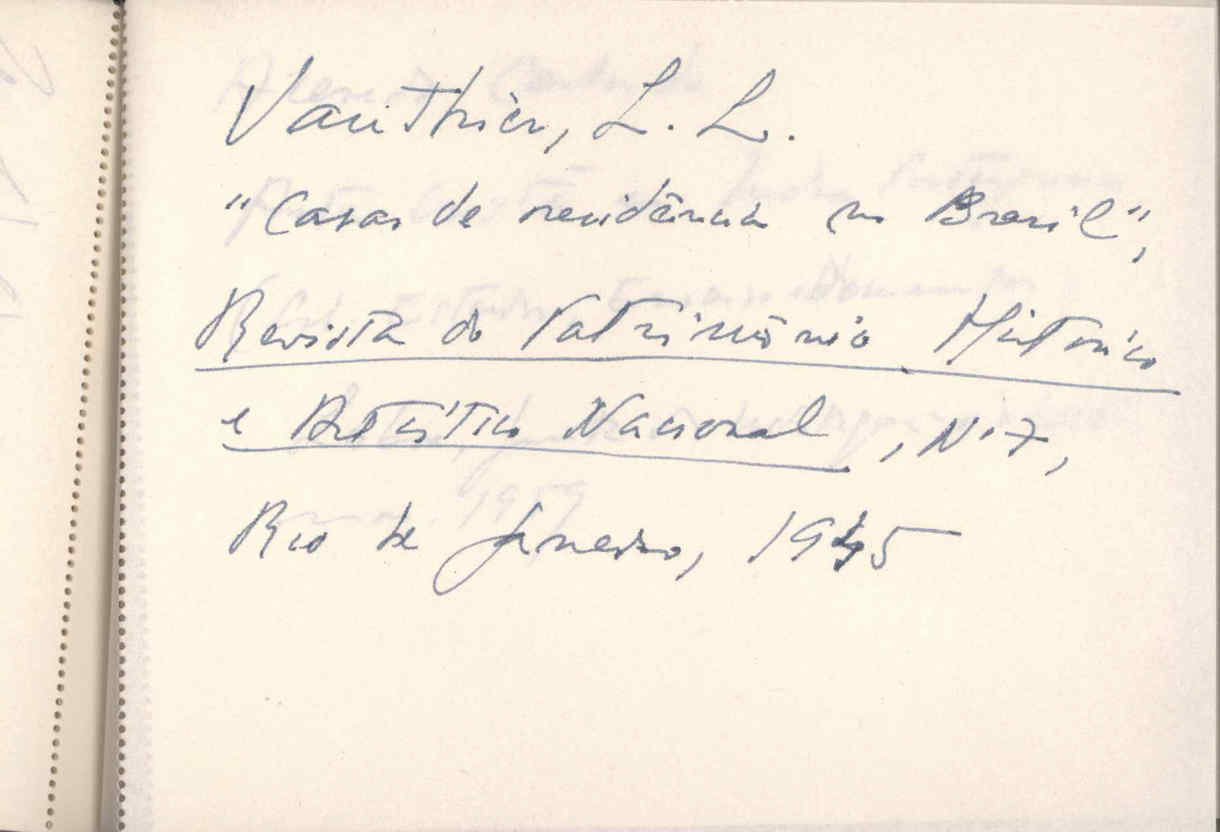 Vauthier, L. L.
"Casas de residência no Brasil",
Revista do Patrimônio Histórico
e Artístico Nacional, Nº 7,
Rio de Janeiro, 1945